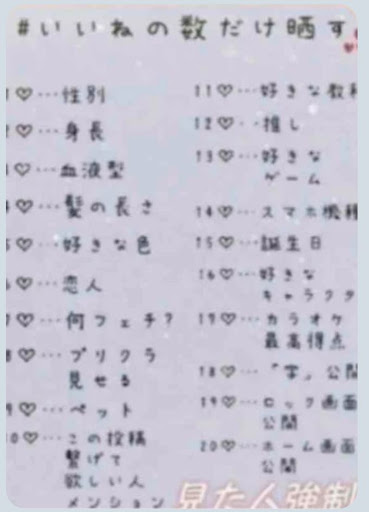 #いいねの数だけ晒す
1♡…性別
2♡…身長
3♡…血液型
4♡…髪の長さ
5♡…好きな色
6♡…恋人
7♡…何フェチ？
8♡…プリクラ
見せる
9♡…ペット
10♡…この投稿
繋げて
欲しい人
メンション
11♡…好きな教科
12♡…推し
13♡…好きな
ゲーム
14♡…スマホ機種
15♡…誕生日
16♡…好きな
キャラクタ
17♡…カラオケ
最高得点
18♡…「字」公開
19♡…ロック画面
公開
20♡…ホーム画面
公開
見た人強制